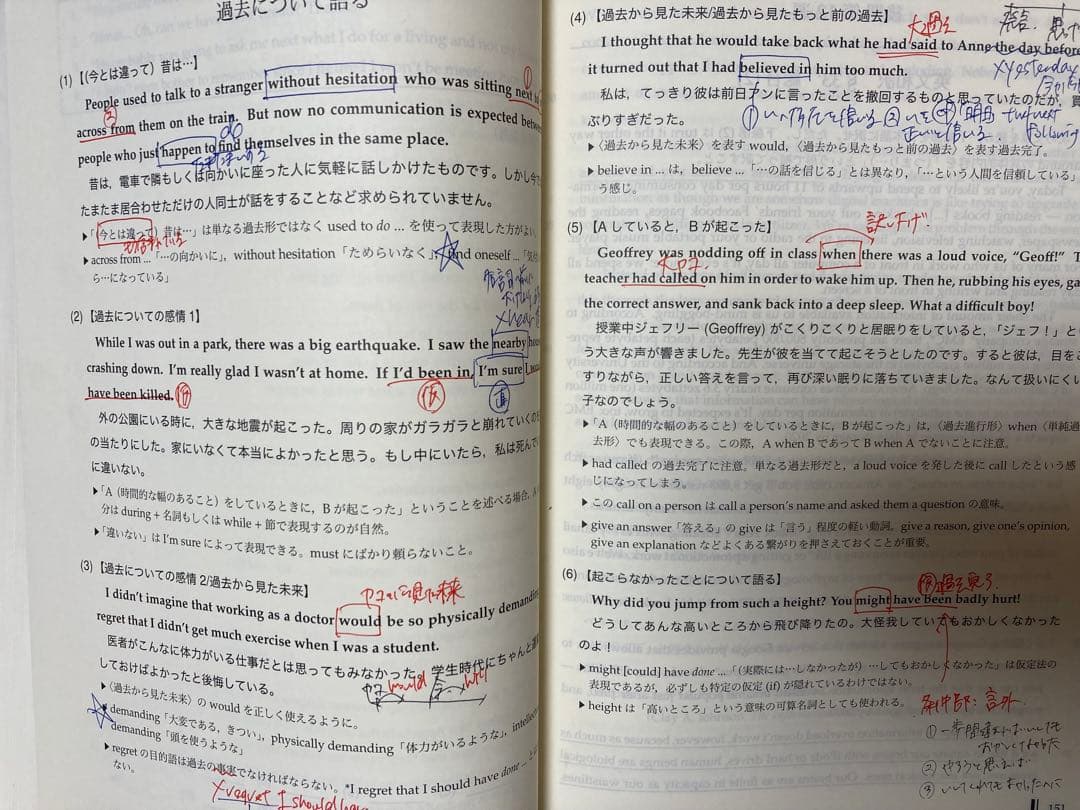 過去について語る
(1)【(今とは違って) 昔は…】
People used to talk to a stranger without hesitation who was sitting next
across from them on the train. But now no communication is expected
people who just happen to find themselves in the same place.
昔は，電車で隣もしくは向かいに座った人に気軽に話しかけたものです。しかし今で
たまたま居合わせただけの人同士が話をすることなど求められていません。
▶「(今とは違って) 昔は…」は単なる過去形ではなく used to do ... を使って表現した方がよい
▶across from ...「…の向かいに」, without hesitation「ためらいなく」, find oneself ...
ら…になっている」
(2)【過去についての感情 1】
While I was out in a park, there was a big earthquake. I saw the nearby
crashing down. I'm really glad I wasn't at home. If I'd been in, I'm sure I
have been killed.
仮
仮
直
外の公園にいる時に，大きな地震が起こった。周りの家がガラガラと崩れていくの
の当たりにした。家にいなくて本当によかったと思う。もし中にいたら，私は死んで
に違いない。
▶「A (時間的な幅のあること) をしているときに，B が起こった」ということを述べる場合，
分は during + 名詞もしくは while + 節で表現するのが自然。
▶「違いない」は I'm sure によって表現できる。must にばかり頼らないこと。
(3)【過去についての感情 2/過去から見た未来】
I didn't imagine that working as a doctor would be so physically demanding
regret that I didn't get much exercise when I was a student.
医者がこんなに体力がいる仕事だとは思ってもみなかった。学生時代にちゃんと運
しておけばよかったと後悔している。
would
will
▶〈過去から見た未来〉の would を正しく使えるように。
▶demanding「大変である，きつい」, physically demanding「体力がいるような」,
demanding「頭を使うような」
▶regret の目的語は過去の事実でなければならない。*I regret that I should have done ...
ない。
×regret I should have
(4)【過去から見た未来/過去から見たもっと前の過去】
大過去
I thought that he would take back what he had said to Anne the day before
it turned out that I had believed in him too much.
×yesterday
the next
following
私は，てっきり彼は前日アンに言ったことを撤回するものと思っていたのだが，買
ぶりすぎだった。
▶〈過去から見た未来〉を表す would,〈過去から見たもっと前の過去〉を表す過去完了。
▶believe in ... は，believe ...「…の話を信じる」とは異なり，「…という人間を信頼している」
う感じ。
(5)【A していると，B が起こった】
訳し下げ!
Geoffrey was nodding off in class when there was a loud voice, "Geoff!"
teacher had called on him in order to wake him up. Then he, rubbing his eyes,
the correct answer, and sank back into a deep sleep. What a difficult boy!
授業中ジェフリー (Geoffrey) がこくりこくりと居眠りをしていると，「ジェフ！」と
う大きな声が響きました。先生が彼を当てて起こそうとしたのです。すると彼は，目をこ
すりながら，正しい答えを言って，再び深い眠りに落ちていきました。なんて扱いにくい
子なのでしょう。
▶「A (時間的な幅のあること) をしているときに，B が起こった」は，〈過去進行形〉when〈単純過
去形〉でも表現できる。この際，A when B であって B when A でないことに注意。
▶had called の過去完了に注意。単なる過去形だと，a loud voice を発した後に call したという感
じになってしまう。
▶この call on a person は call a person's name and asked them a question の意味。
▶give an answer「答える」の give は「言う」程度の軽い動詞。give a reason, give one's opinion,
give an explanation などよくある繋がりを押さえておくことが重要。
(6)【起こらなかったことについて語る】
Why did you jump from such a height? You might have been badly hurt!
どうしてあんな高いところから飛び降りたの。大怪我していてもおかしくなかった
のよ！
▶might [could] have done ...「(実際には…しなかったが) …してもおかしくなかった」は仮定法の
表現であるが，必ずしも特定の仮定 (if) が隠れているわけではない。
▶height は「高いところ」という意味の可算名詞としても使われる。
条件節：言外
151